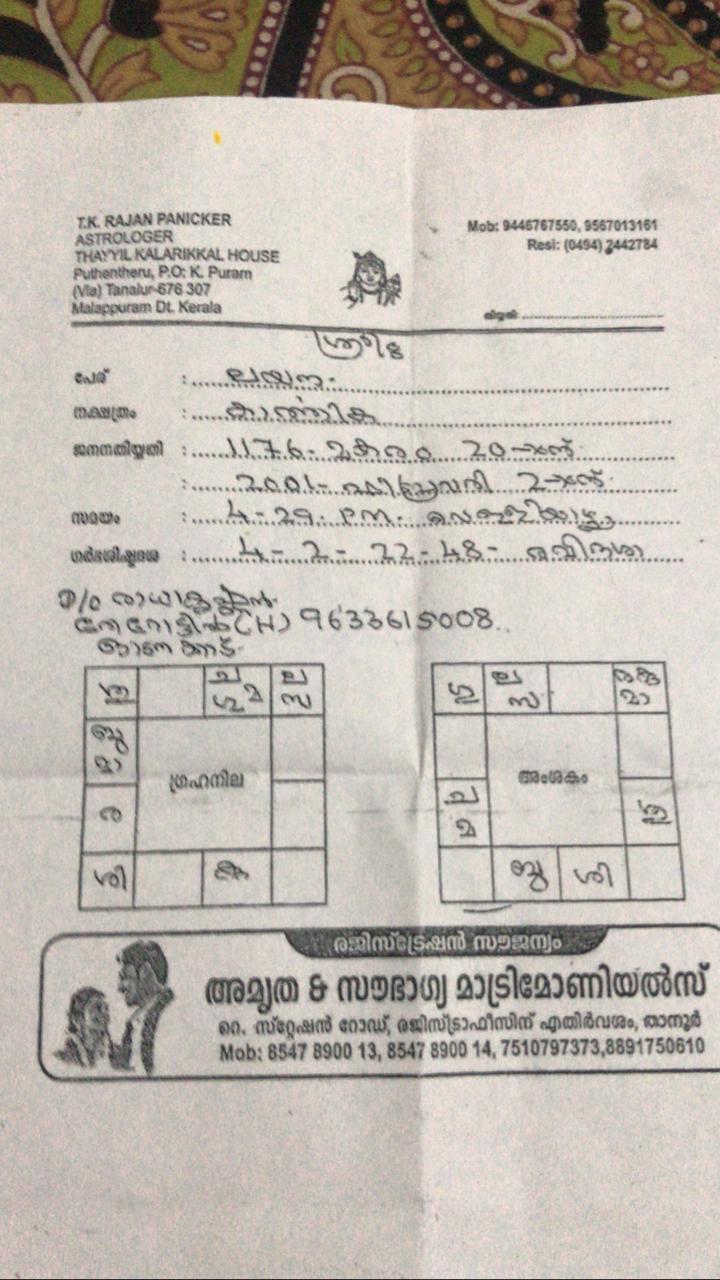 T.K. RAJAN PANICKER
ASTROLOGER
THAYYIL KALARIKKAL HOUSE
Puthentheru, P.O: K. Puram
(Via) Tanalur-676 307
Malappuram Dt. Kerala
Mob: 9446767550, 9567013161
Resi: (0494) 2442784
തിയ്യതി
പേര് :
നക്ഷത്രം : കാർത്തിക
ജനനതിയ്യതി : 1176- മകരം 20-ാംന്
: 2001- ഫിബ്രുവരി 2-ാംന്
സമയം : 4-29. P.M. വെള്ളിയാഴ്ച
ഗർഭശിഷ്ടദശ : 4-2-22-48- രവിദശ
D/o രാധാകൃഷ്ണൻ
(H) 9633615008.
ശു
ച
ഗു മ
ല
സ
ബു
മാ
ഗ്രഹനില
ര
ശി
കു
ഗു
ല
സ
മാ
അംശകം
ച
മ
ശു
ബു
ശി
രജിസ്ട്രേഷൻ സൗജന്യം
അമൃത & സൗഭാഗ്യ മാട്രിമോണിയൽസ്
റെ. സ്റ്റേഷൻ റോഡ്, രജിസ്ട്രാഫീസിന് എതിർവശം, താനൂർ
Mob: 8547 8900 13, 8547 8900 14, 7510797373,8891750610